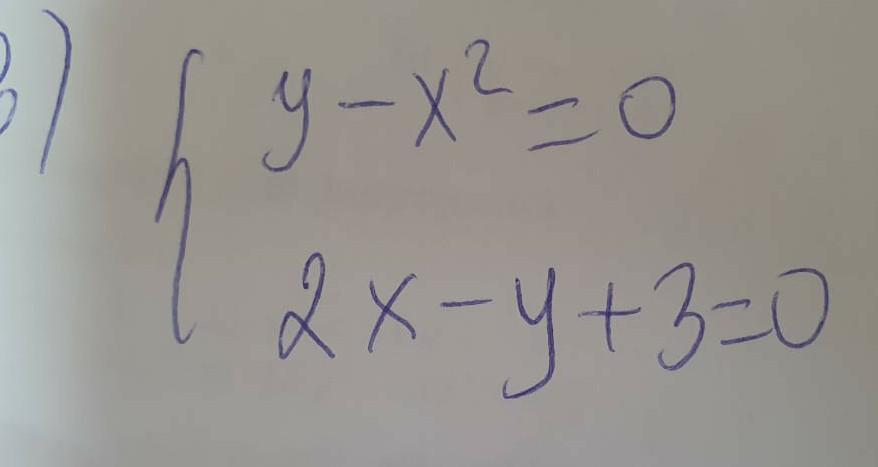 в) y - x² = 0
2x - y + 3 = 0